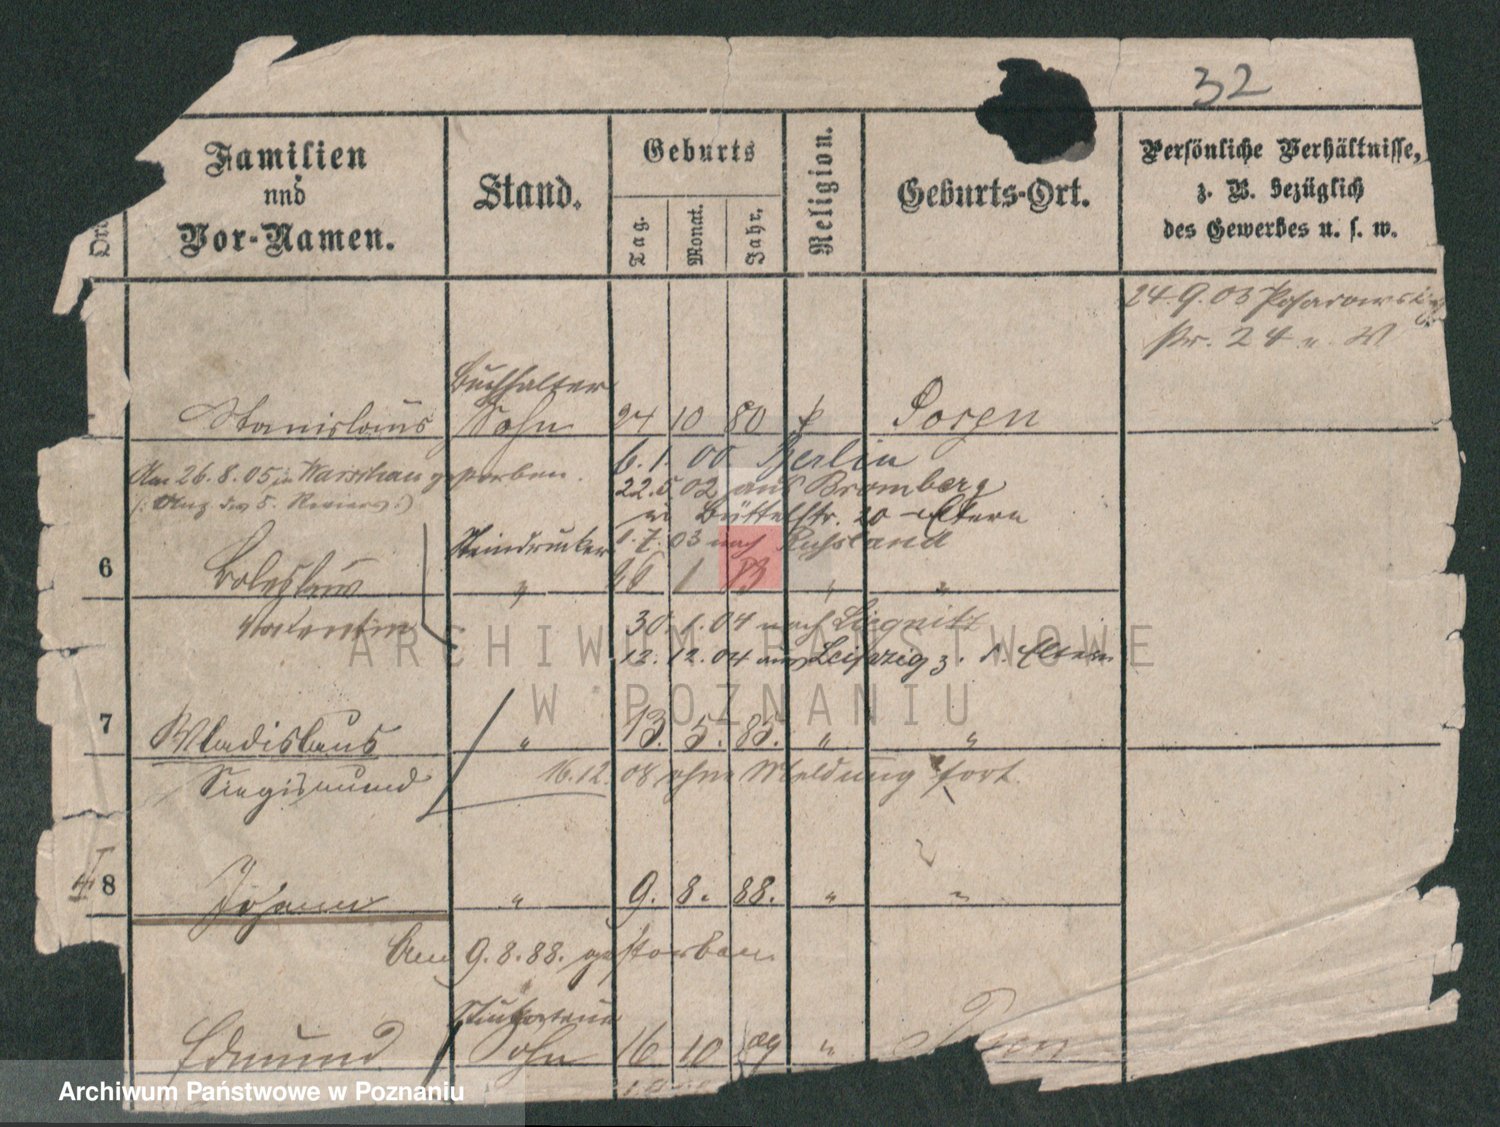 32
Familien
und
Vor-Namen.
Stand.
Geburts
Tag.
Monat.
Jahr.
Religion.
Geburts-Ort.
Persönliche Verhältnisse,
z. B. bezüglich
des Gewerbes u. s. w.
24.9.03
24 u.
Buchhalter
Stanislaus Sohn 24 10 80 Posen
6.1.00 Berlin
Am 26.8.05 in Warschau gestorben.
22.5.02 aus Bromberg
(: Anz des 5. Reviers :)
Büttelstr. 20 Eltern
Steindrucker 1.7.03 nach Russland
6 Boleslaus " 26 1 83 " "
Valentin 30.1.04 nach Liegnitz
12.12.04 aus Leipzig z. d. Eltern
7 Wladislaus " 13. 5. 85. " "
Siegismund 16.12.08 ohne Meldung fort
8 Johann " 9. 8. 88. " "
Am 9.8.88. gestorben.
Edmund Sohn 16. 10 89 " Posen
ARCHIWUM PAŃSTWOWE
W POZNANIU
Archiwum Państwowe w Poznaniu